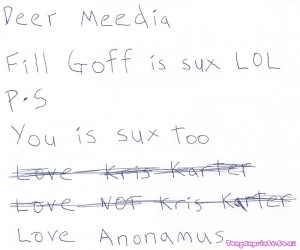 Deer Meedia
Fill Goff is sux LOL
P.S
You is sux too
Love Kris Karter
Love NOT Kris Karter
Love Anonamus